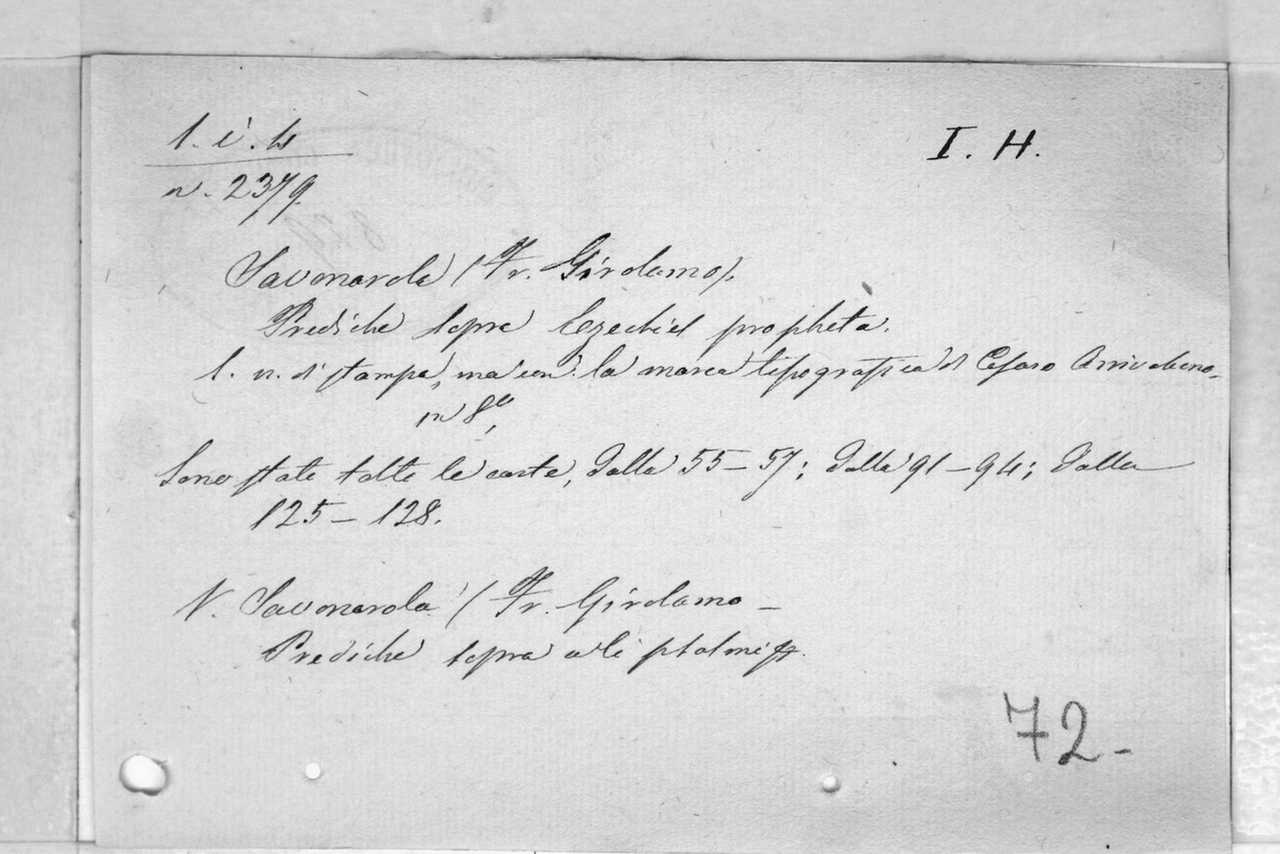 1. i. 4
I. H.
n. 2379.
Savonarola (Fr. Girolamo).
Prediche sopra Ezechiel propheta.
s. n. di stampa, ma con la marca tipografica di Cesaro Arrivabeno_
in 8º,
Sono state tolte le carte, dalla 55-57; dalla 91-94; dalla
125-128.
V. Savonarola (Fr. Girolamo _
Prediche sopra alc psalmi
72-